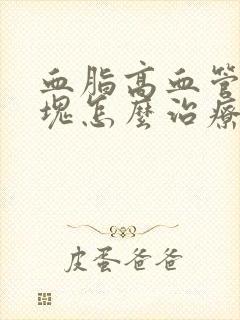 血脂高血管
塊怎麼治療
皮蛋爸爸